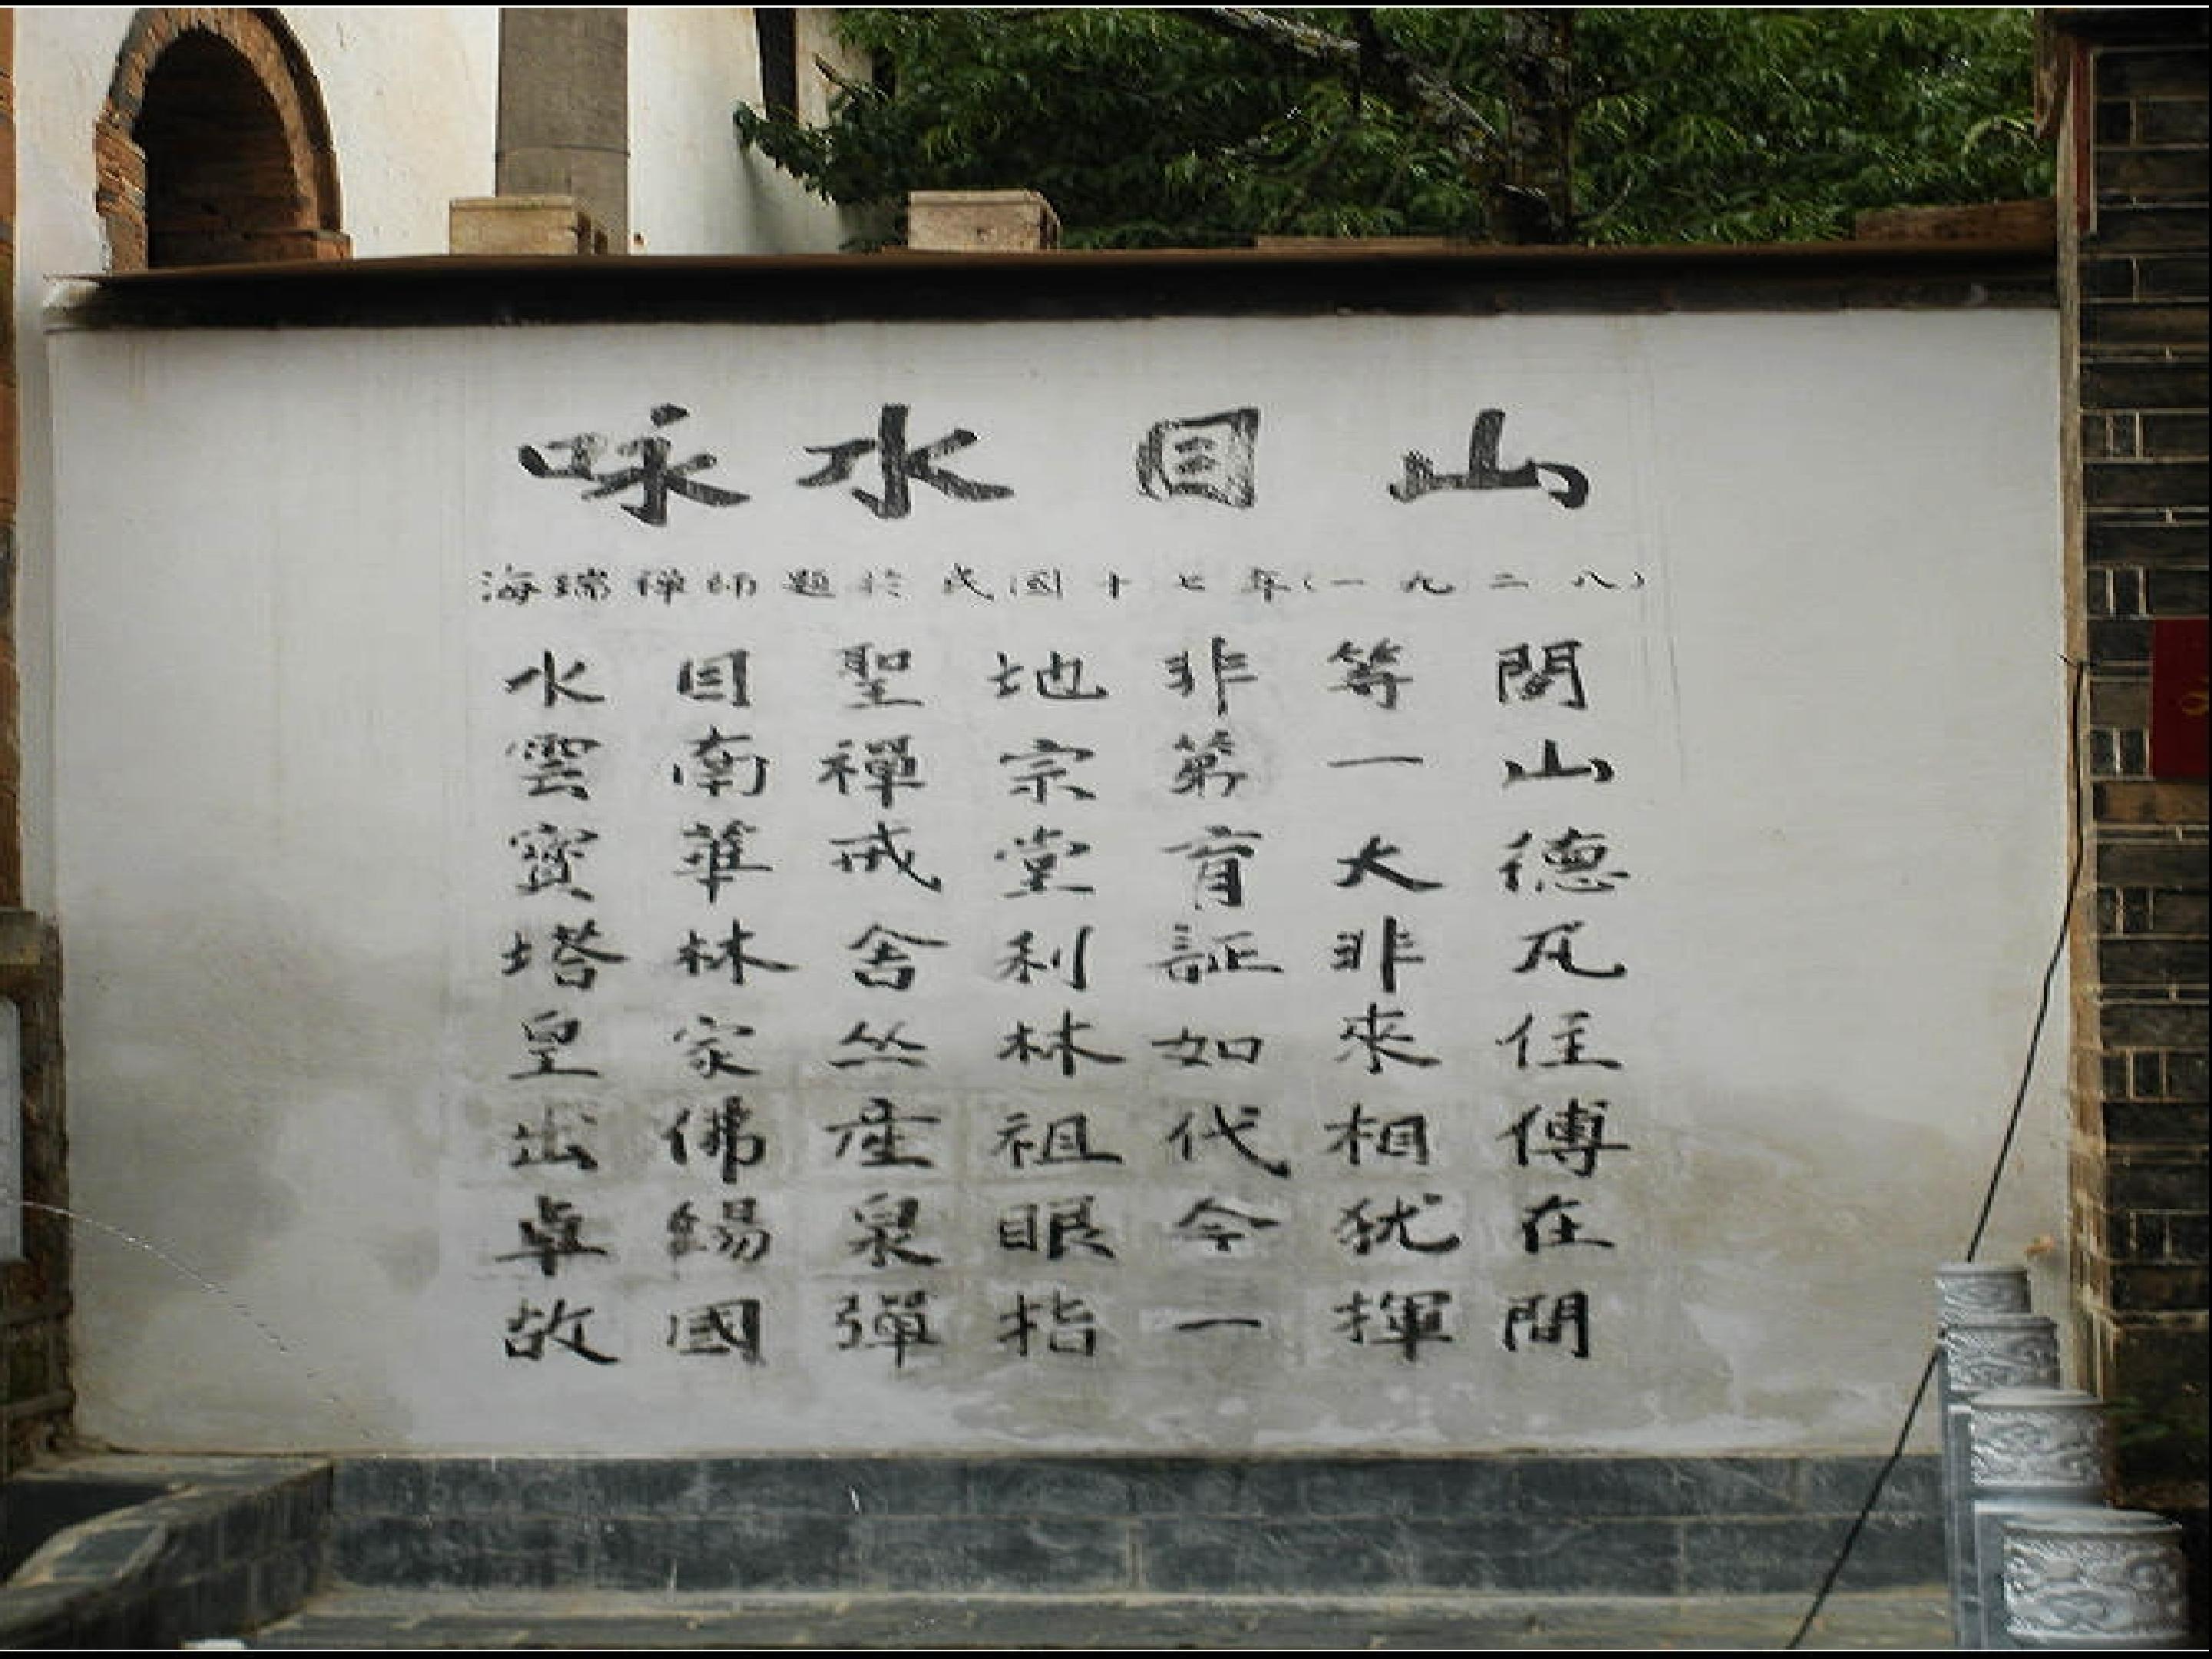 咏水目山
海瑞禪師題於民國十七年(一九二八)
水目聖地非等閒
雲南禪宗第一山
寶華戒堂育大德
塔林舍利証非凡
皇家丛林如來住
出佛產祖代相傳
卓錫泉眼今犹在
故國彈指一揮間